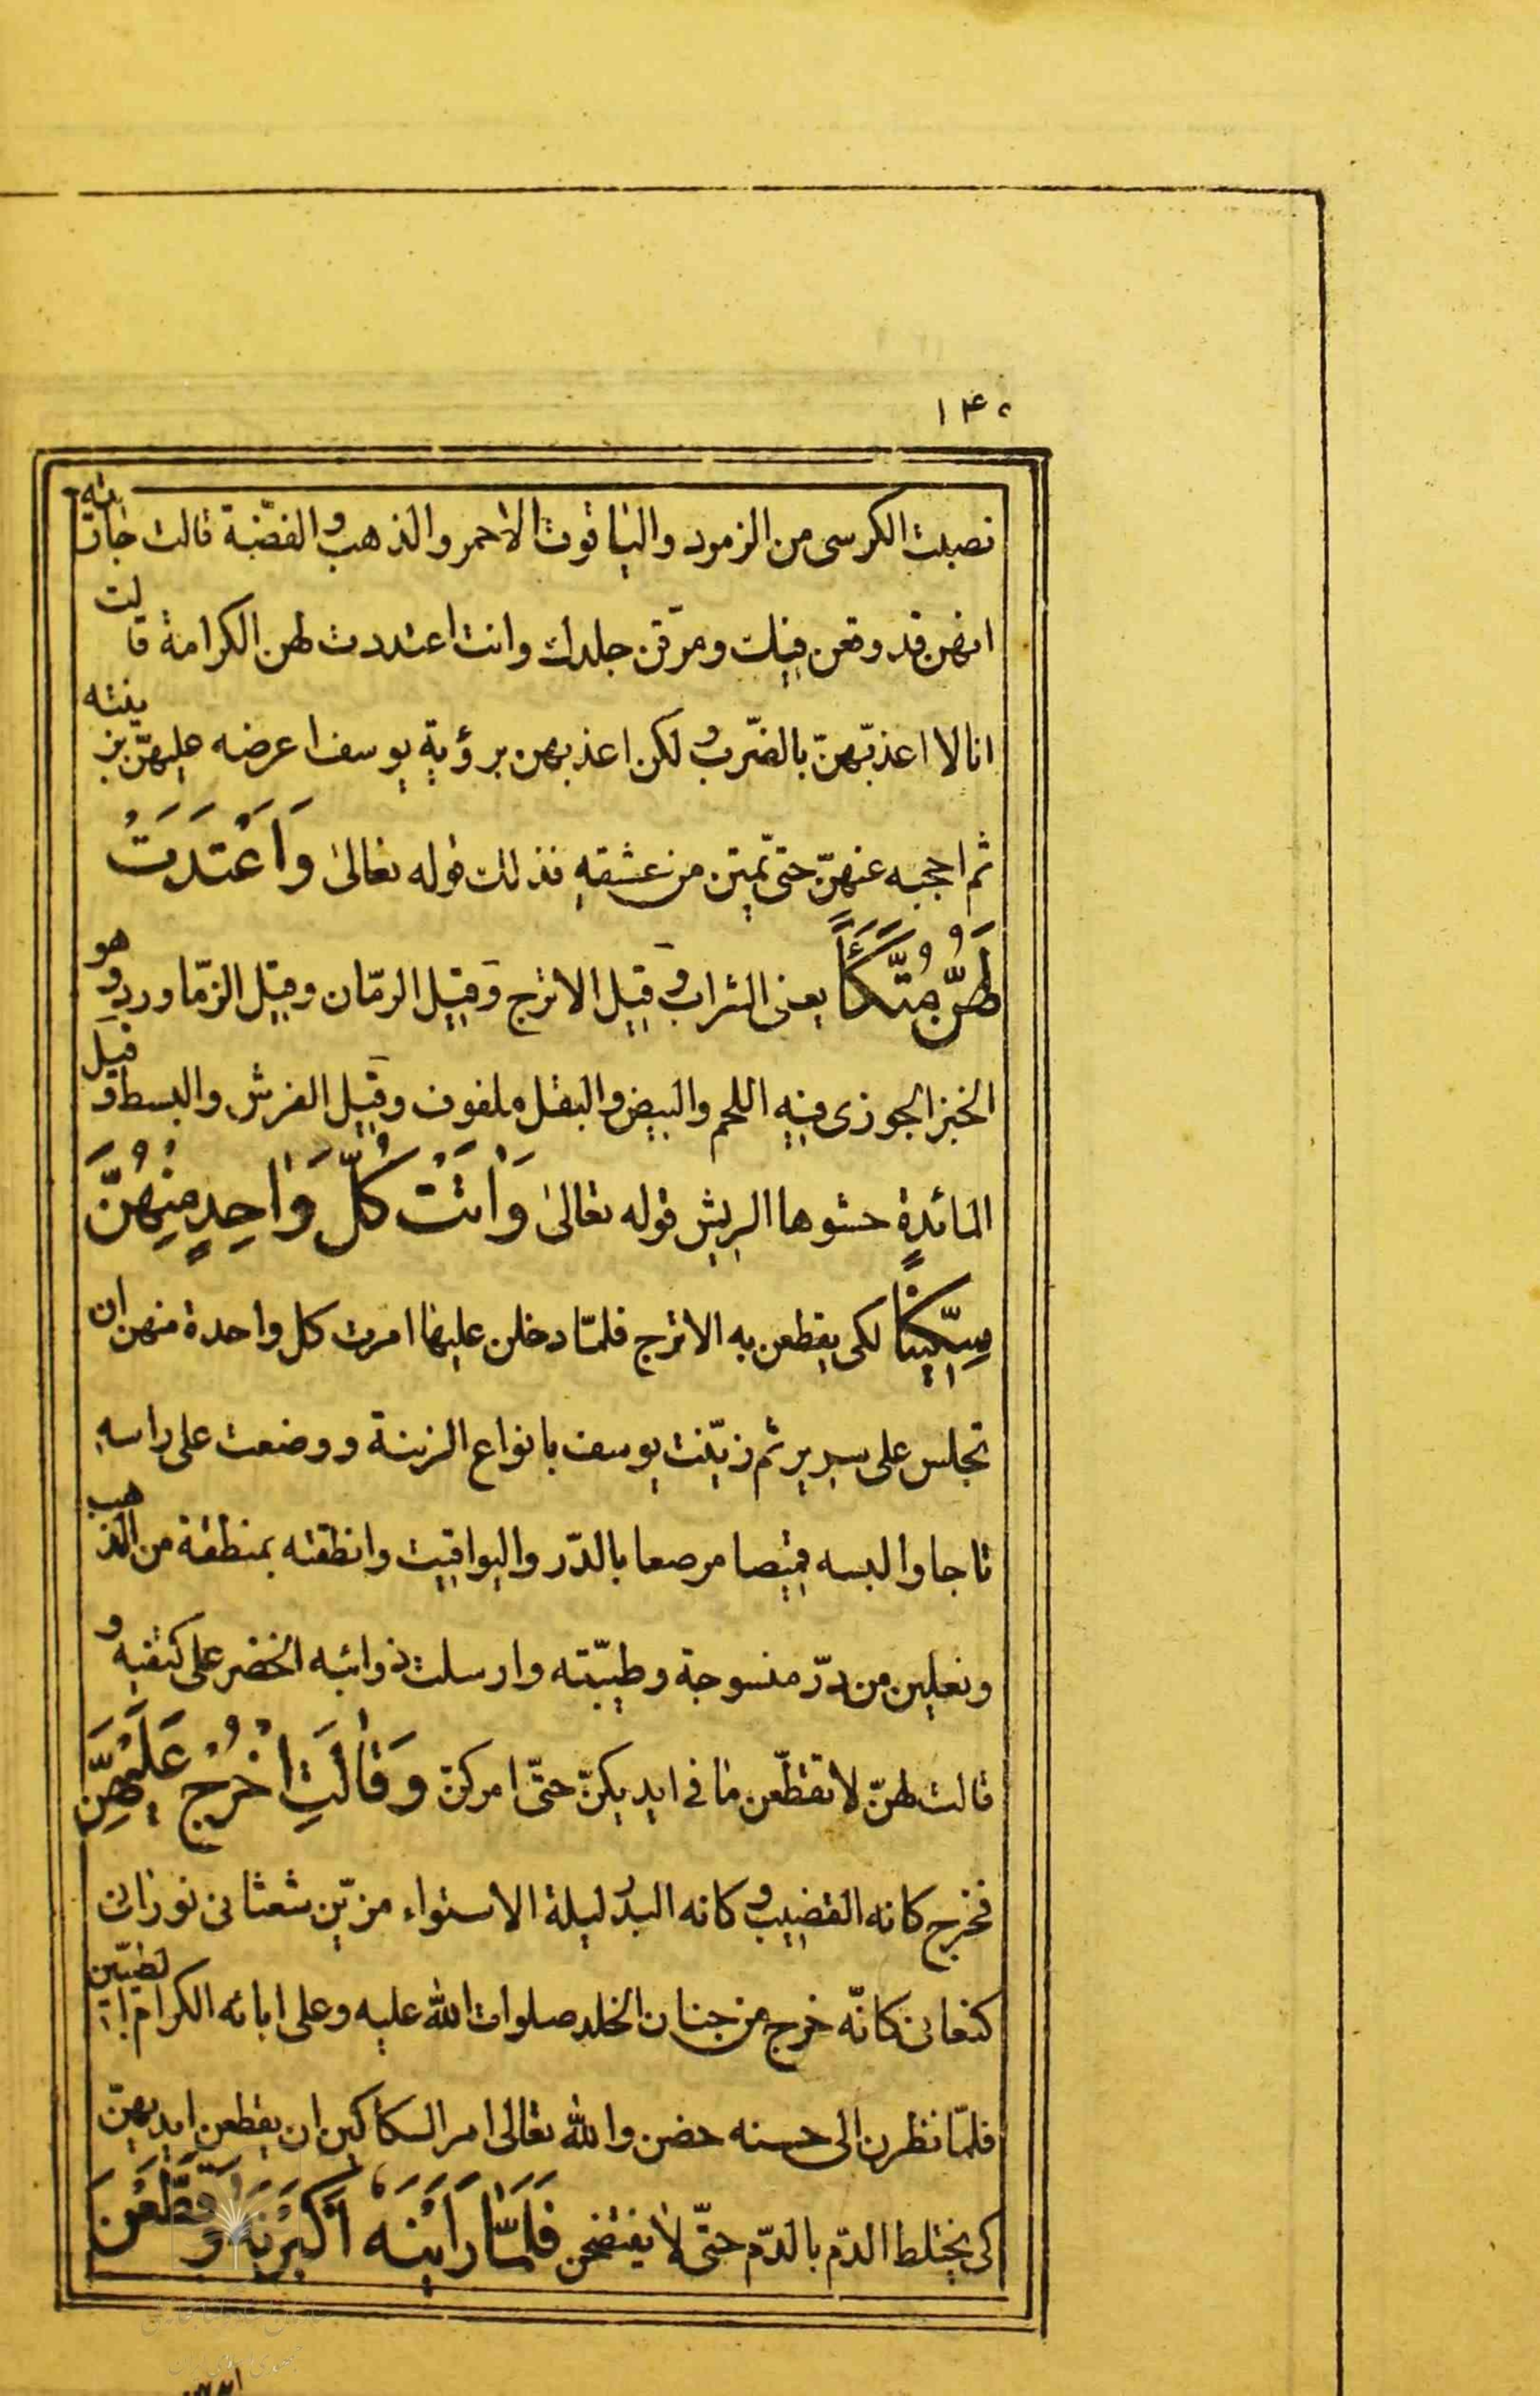 ۱۴۰
نصبت الكرسى من الزمرد والياقوت الاحمر والذهب و الفضّة قالت جاريته
انهن قد وقعن فيك ومزّقن جلدك وانت اعتددت لهن الكرامة قالت
انا لا اعذبّهنّ بالضّرب و لكن اعذبهن برؤية يوسف اعرضه عليهنّ بزينته
ثم احجبه عنهنّ حتى يمتن من عشقه فذلك قوله تعالى وَاَعْتَدَتْ
لَهُنَّ مُتَّكَأً يعنى الشراب و قيل الاترج وقيل الرمّان وقيل الزمّاورد و هو
الخبز الجوزى فيه اللحم والبيض والبقل ملفوف وقيل الفرش والبسط و قيل
المائدة حشوها الريش قوله تعالى وَاٰتَتْ كُلَّ وٰاحِدٍ مِنْهُنَّ
سِكّيناً لكى يقطعن به الاترج فلمّا دخلن عليها امرت كل واحدة منهن ان
تجلس على سرير ثم زيّنت يوسف بانواع الزينة ووضعت على راسه
تاجا والبسه قميصا مرصعا بالدّر واليواقيت وانطقته بمنطقة من الذهب
ونعلين من درّ منسوجة وطيّبته وارسلت ذوائبه الخضر على كتفيه و
قالت لهنّ لا تقطّعن ما فى ايديكنّ حتّى امركنّ وَقٰالَتِ اخْرُجْ عَلَيْهِنَّ
فخرج كانه القضيب و كانه البدر ليلة الاستواء مزيّن شعثانى نورانى
كنعانى كانّه خرج من جنان الخلد صلوات الله عليه وعلى ابائه الكرام الطيّبين
فلمّا نظرن الى حسنه حضن والله تعالى امر السكاكين ان يقطعن ايديهنّ
كى يختلط الدّم بالدّم حتّى لا يفتضحن فَلَمّٰا رَاَيْنَهُ اَكْبَرْنَهُ وَقَطَّعْنَ
ايديهن